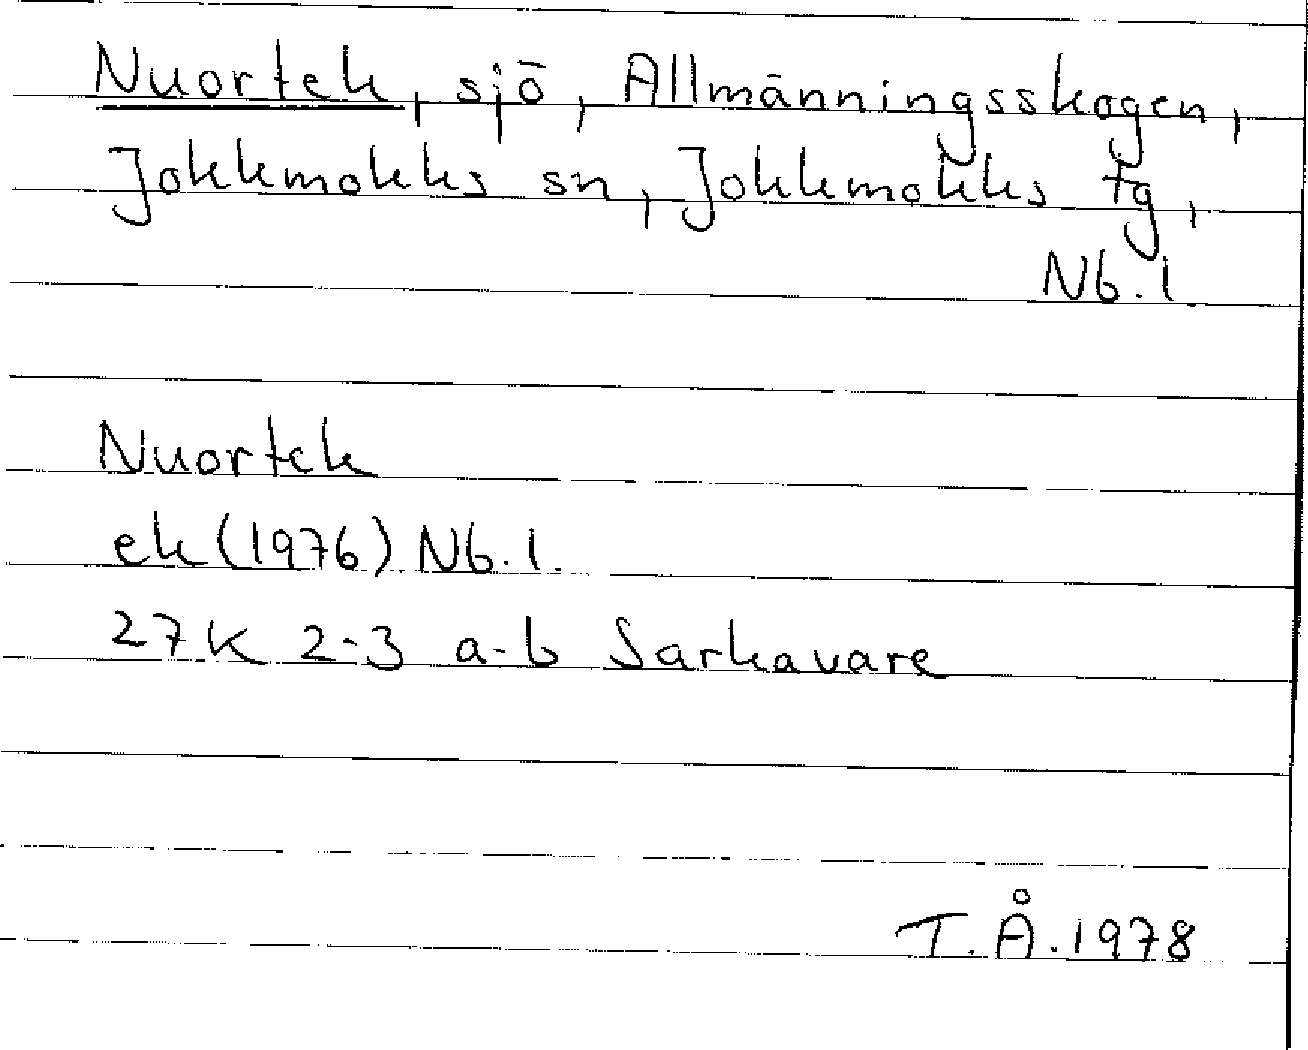 Nuortek, sjö, Allmänningsskogen,
Jokkmokks sn, Jokkmokks tg,
Nb. l
Nuortek
ek (1976) Nb. l.
27K 2-3 a-b Sarkavare
T.Å. 1978